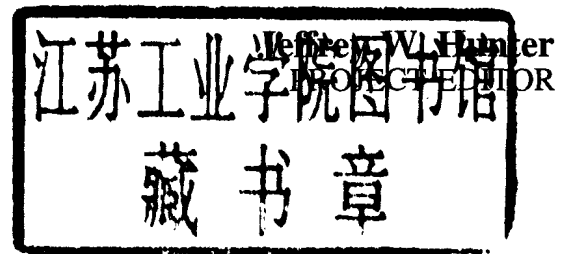 Jeffrey W. Hunter
PROJECT EDITOR
江苏工业学院图书馆
藏书章